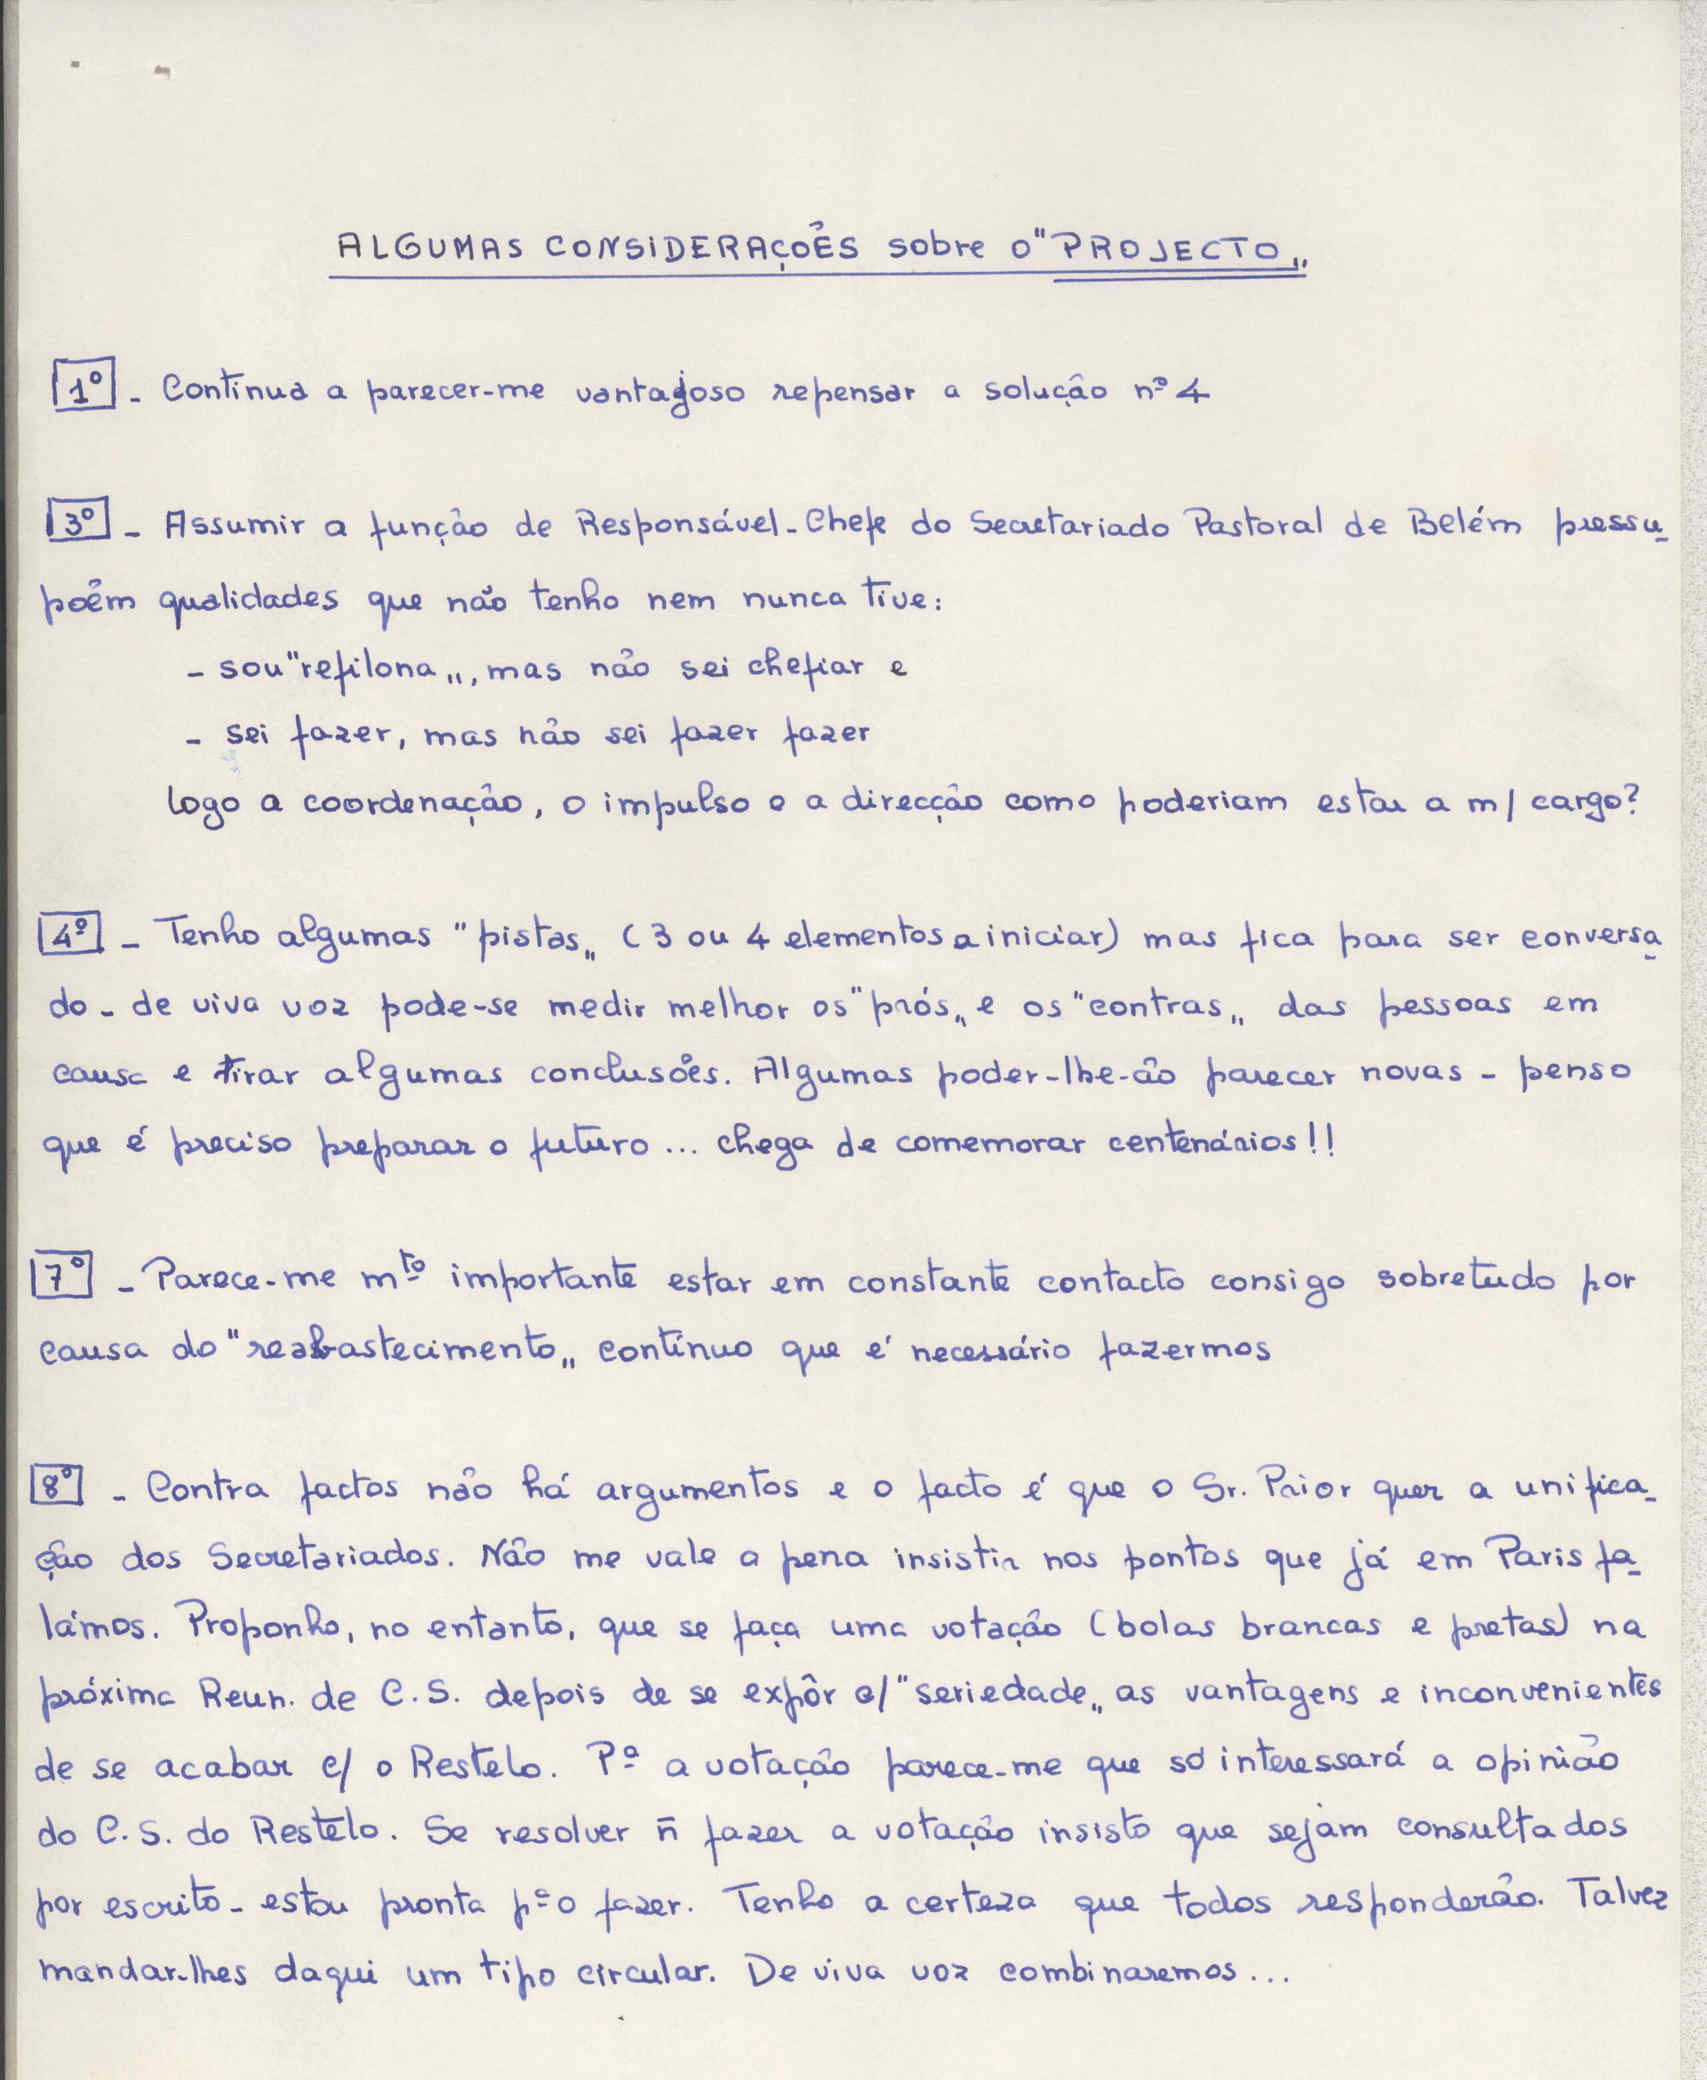 ALGUMAS CONSIDERAÇÕES sobre o "PROJECTO"
1º - Continua a parecer-me vantajoso repensar a solução nº 4
3º - Assumir a função de Responsável-Chefe do Secretariado Pastoral de Belém pressu-
poêm qualidades que não tenho nem nunca tive:
- sou "refilona", mas não sei chefiar e
- sei fazer, mas não sei fazer fazer
logo a coordenação, o impulso e a direcção como poderiam estar a m/ cargo?
4º - Tenho algumas "pistas" (3 ou 4 elementos a iniciar) mas fica para ser conversa-
do - de viva voz pode-se medir melhor os "prós" e os "contras" das pessoas em
causa e tirar algumas conclusões. Algumas poder-lhe-ão parecer novas - penso
que é preciso preparar o futuro... chega de comemorar centenários!!
7º - Parece-me mto importante estar em constante contacto consigo sobretudo por
causa do "reabastecimento" contínuo que é necessário fazermos
8º - Contra factos não há argumentos e o facto é que o Sr. Prior quer a unifica-
ção dos Secretariados. Não me vale a pena insistir nos pontos que já em Paris fa-
lámos. Proponho, no entanto, que se faça uma votação (bolas brancas e pretas) na
próxima Reun. de C.S. depois de se expôr c/ "seriedade" as vantagens e inconvenientes
de se acabar c/ o Restelo. Pª a votação parece-me que só interessará a opinião
do C.S. do Restelo. Se resolver ñ fazer a votação insisto que sejam consultados
por escrito - estou pronta pª o fazer. Tenho a certeza que todos responderão. Talvez
mandar-lhes daqui um tipo circular. De viva voz combinaremos...